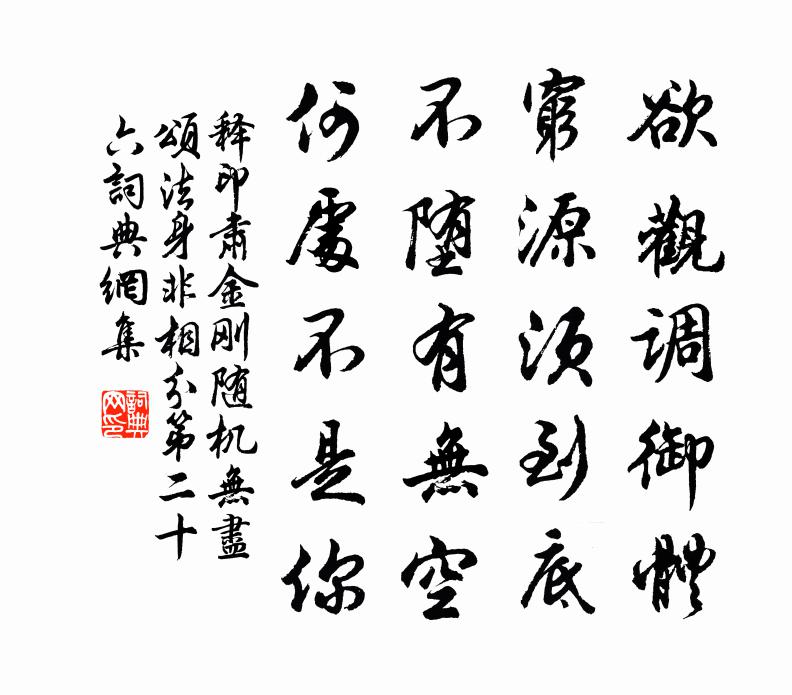 欲觀調御體
窮源須到底
不墮有無空
何處不是你
释印肅金刚随机無盡
頌法身非相分第二十
六詞典網集
詞典
网印